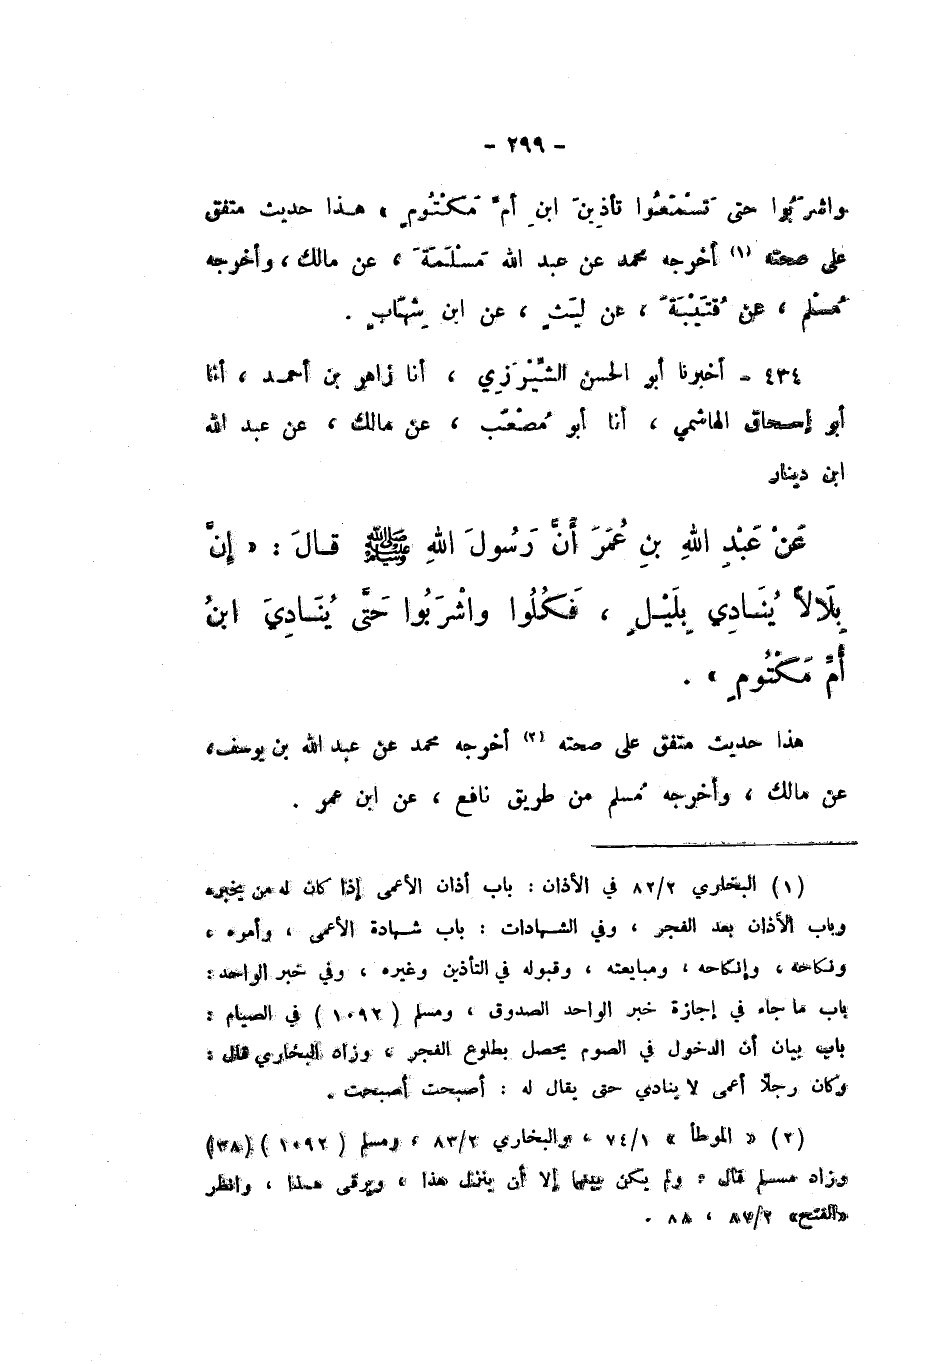 - ٢٩٩ -
واشرَبُوا حتى تَسْمَعُوا تأذينَ ابنِ أمِّ مَكْتُومٍ » هذا حديث متفق
على صحته (١) أخرجه محمد عن عبد الله مَسْلَمَةَ ، عن مالك ، وأخرجه
مُسْلم ، عن قُتَيْبَةَ ، عن ليَثٍ ، عن ابن شِهَابٍ .
٤٣٤ - أخبرنا أبو الحسن الشِّيْرَزِي ، أنا زاهر بن أحمد ، أنا
أبو إسحاق الهاشمي ، أنا أبو مُصْعَبٍ ، عن مالك ، عن عبد الله
ابن دينار
عَنْ عَبْدِ اللهِ بنِ عُمَرَ أَنَّ رَسُولَ اللهِ ﷺ قالَ : « إنَّ
بِلَالاً يُنَادِي بِلَيْلٍ ، فَكُلُوا واشْرَبُوا حَتَّى يُنَادِيَ ابنُ
أُمِّ مَكْتُومٍ » .
هذا حديث متفق على صحته (٢) أخرجه محمد عن عبد الله بن يوسف،
عن مالك ، وأخرجه مُسلم من طريق نافع ، عن ابن عمر .
(١) البخاري ٨٢/٢ في الأذان : باب أذان الأعمى إذا كان له من يخبره
وباب الأذان بعد الفجر ، وفي الشهادات : باب شهادة الأعمى ، وأمره ،
ونكاحه ، وإنكاحه ، ومبايعته ، وقبوله في التأذين وغيره ، وفي خبر الواحد :
باب ما جاء في إجازة خبر الواحد الصدوق ، ومسلم ( ١٠٩٢ ) في الصيام :
باب بيان أن الدخول في الصوم يحصل بطلوع الفجر ، وزاد البخاري قال :
وكان رجلاً أعمى لا ينادي حتى يقال له : أصبحت أصبحت .
(٢) « الموطأ » ٧٤/١ ، والبخاري ٨٣/٢ ، ومسلم ( ١٠٩٢ ) (٣٨)
وزاد مسلم قال : ولم يكن بينهما إلا أن ينزل هذا ، ويرقى هذا ، وانظر
«الفتح» ٨٧/٢ ، ٨٨ .